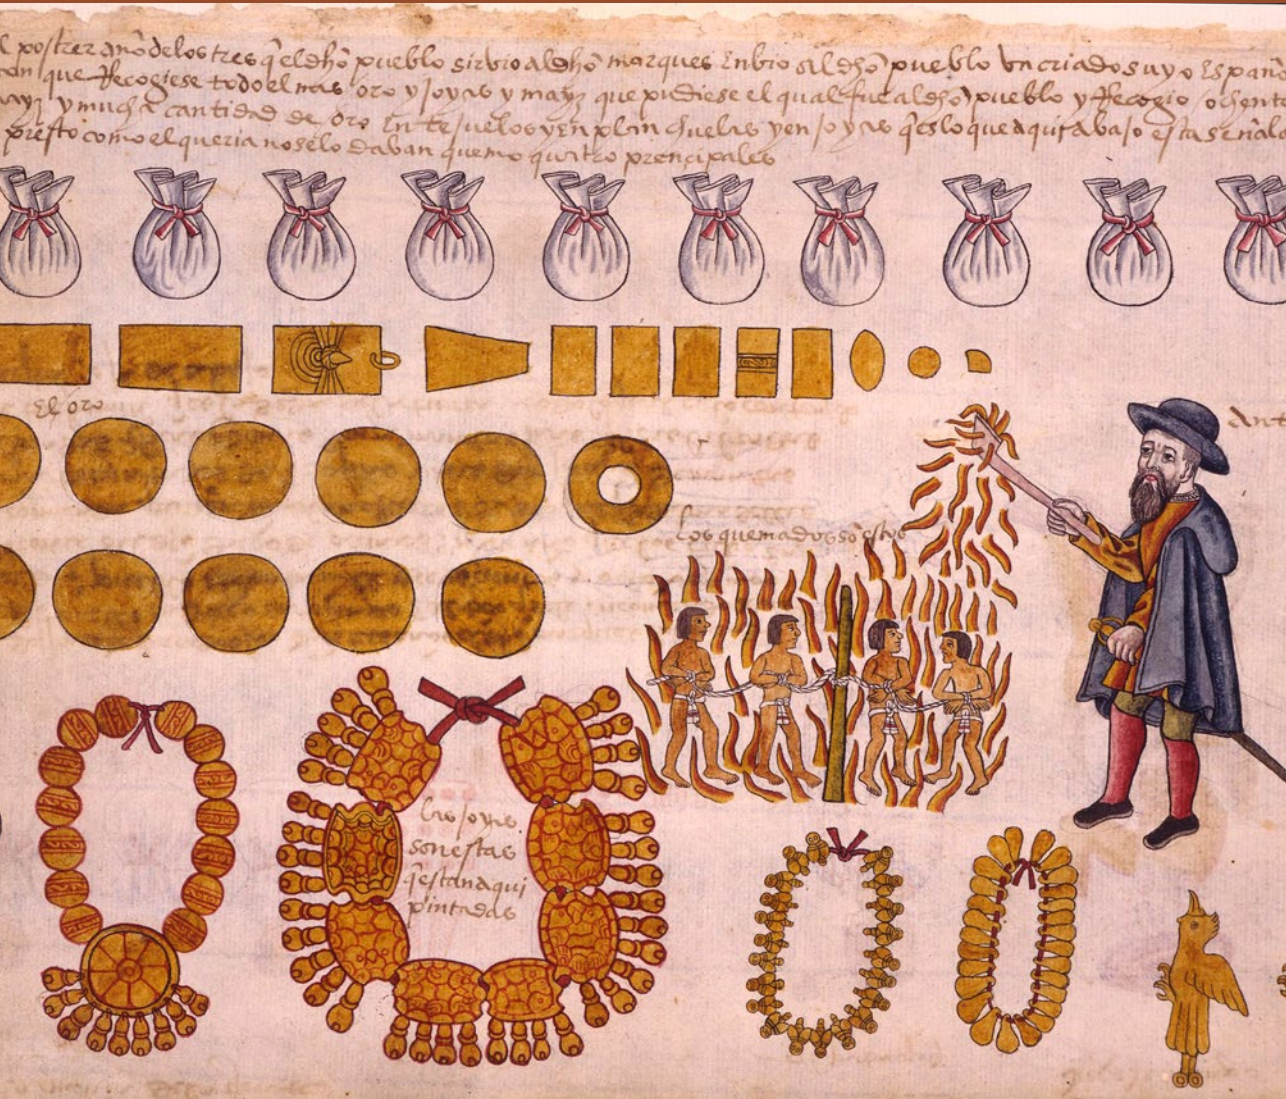 l postrer año de los tres q̃ el dhõ pueblo sirvio al dhõ marques Enbio al dhõ pueblo Vn criado suyo Españ
que Recogiese todo el mas oro y joyas y mayz que pudiese el qual fue al dhõ pueblo y Recogio ochent
ayz y mucha cantidad de oro En tejuelos y En planchuelas y en joyas q̃ es lo que aqui abajo esta señal
presto como el queria no se lo daban quemo quatro prencipales
El oro
Ant
los quemados sõ estos
las joyas
son estas
q̃ estan aqui
pintadas